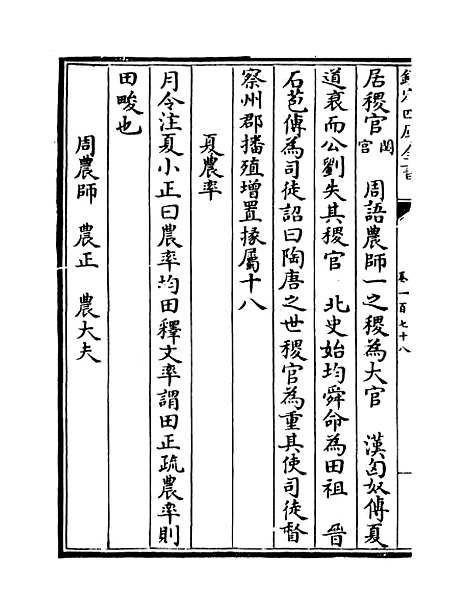 欽定四庫全書
卷一百七十八
居稷官閟宮　周語農師一之稷為大官　漢匈奴傳夏
道衰而公劉失其稷官　北史始均舜命為田祖　晉
石苞傳為司徒詔曰陶唐之世稷官為重其使司徒督
察州郡播殖增置掾屬十八
夏農率
月令注夏小正曰農率均田釋文率謂田正疏農率則
田畯也
周農師　農正　農大夫